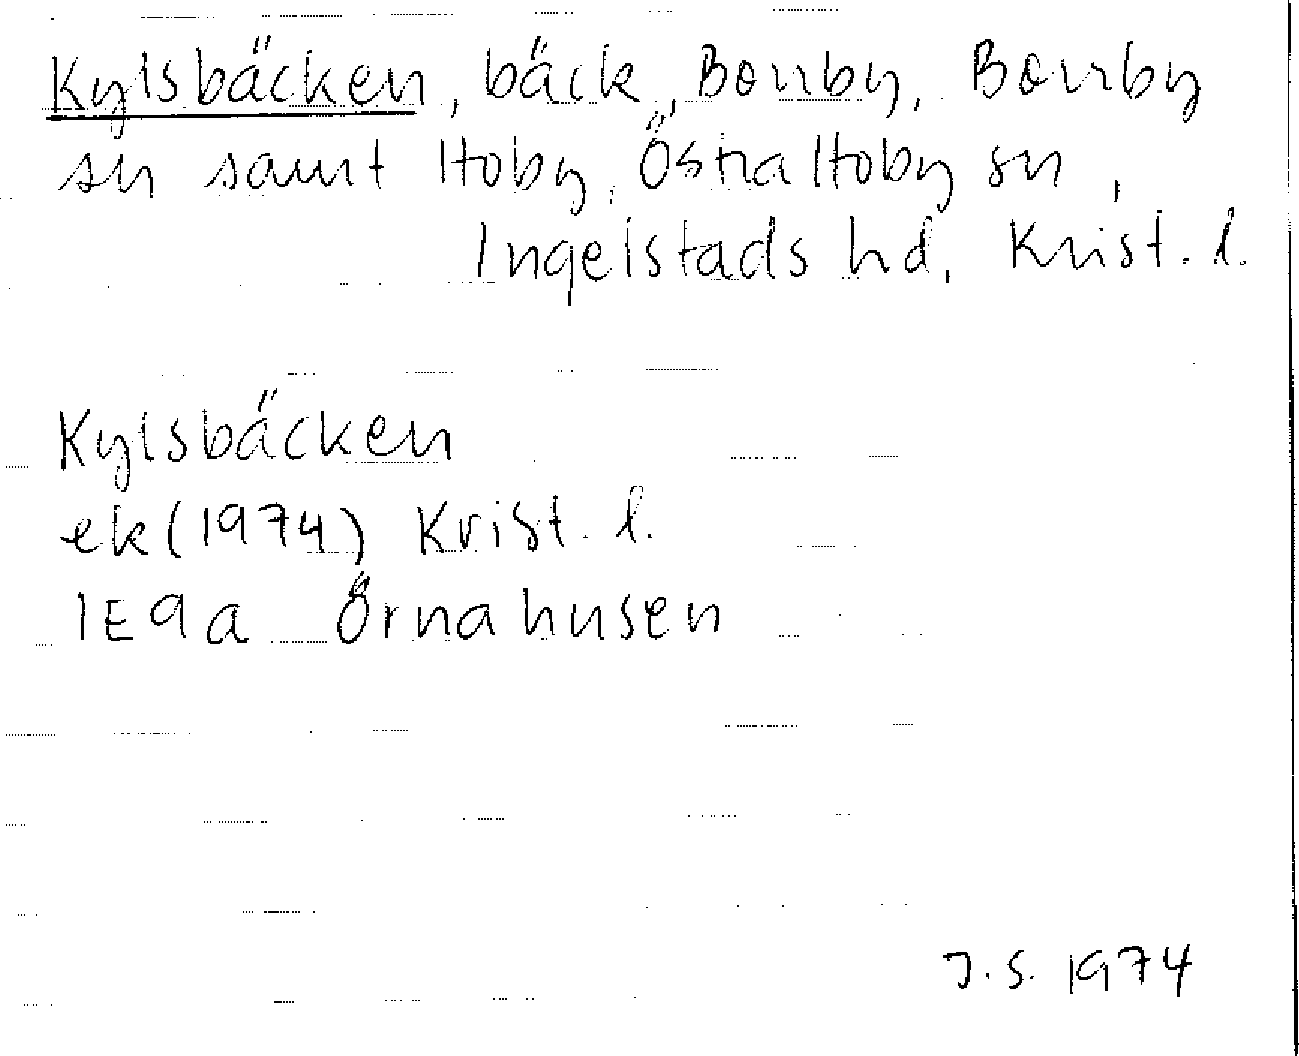 Kylsbäcken, bäck, Borrby, Borrby
sn samt Hoby, Östra Hoby sn,
Ingelstads hd, Krist. l.
Kylsbäcken
ek (1974) Krist. l.
1E9a Örnahusen
J.S. 1974